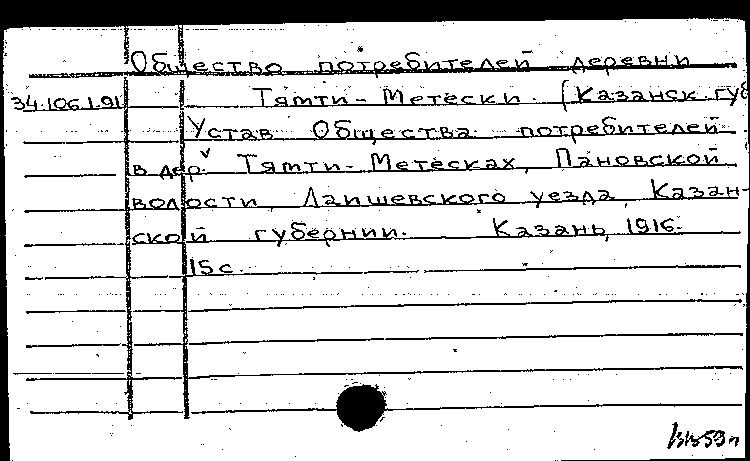 Общество потребителей деревни
34.106.1.91 Тямти-Метески. (Казанск. губ
Устав Общества потребителей
в дер. Тямти-Метесках, Пановской
волости, Лаишевского уезда, Казан-
ской губернии. Казань, 1916.
15 с.